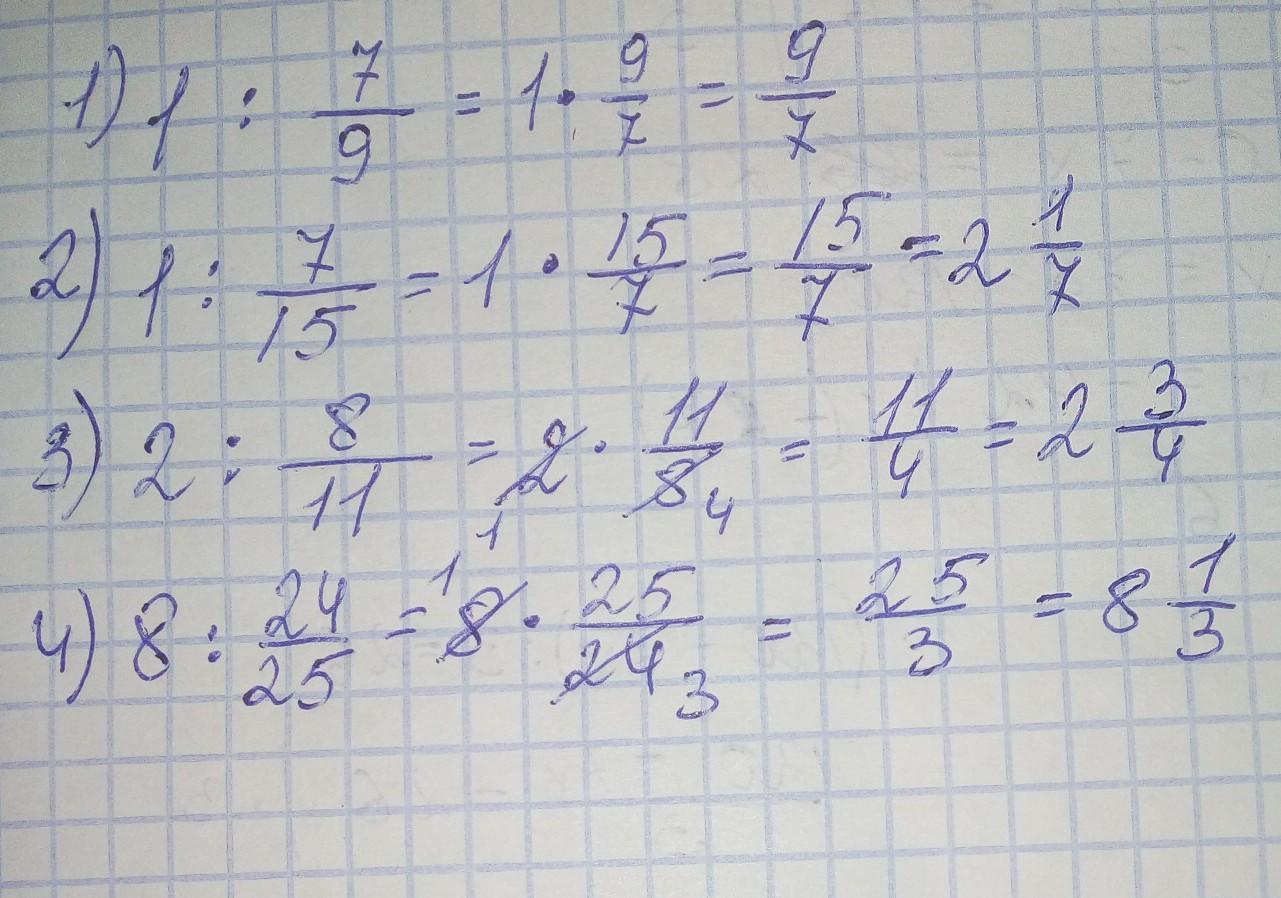 1) 1 : 7/9 = 1 · 9/7 = 9/7
2) 1 : 7/15 = 1 · 15/7 = 15/7 = 2 1/7
3) 2 : 8/11 = 2 1 · 11/8 4 = 11/4 = 2 3/4
4) 8 : 24/25 = 1 8 · 25/24 3 = 25/3 = 8 1/3